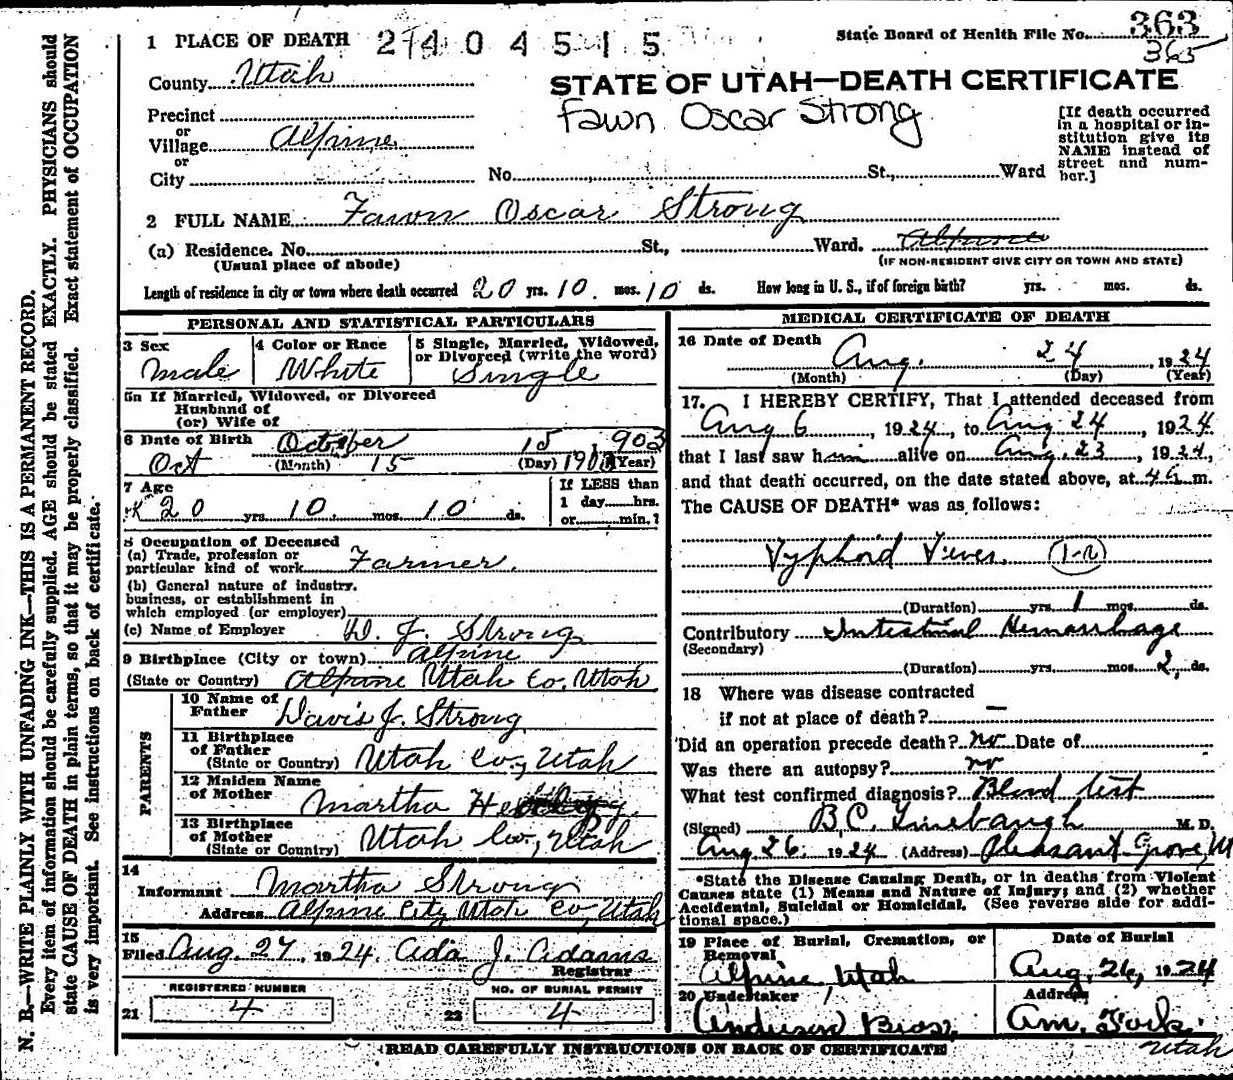 363
State Board of Health File No.
365
1 PLACE OF DEATH 2404515
County Utah
STATE OF UTAH—DEATH CERTIFICATE
Fawn Oscar Strong
Precinct
or
Village Alpine
or
City
No. St., Ward
[If death occurred
in a hospital or in-
stitution give its
NAME instead of
street and num-
ber.]
2 FULL NAME Fawn Oscar Strong
(a) Residence. No. St., Ward. Alpine
(Usual place of abode) (IF NON-RESIDENT GIVE CITY OR TOWN AND STATE)
Length of residence in city or town where death occurred 20 yrs. 10 mos. 10 ds. How long in U. S., if of foreign birth? yrs. mos. ds.
PERSONAL AND STATISTICAL PARTICULARS
3 Sex 4 Color or Race 5 Single, Married, Widowed,
or Divorced (write the word)
Male White Single
5a If Married, Widowed, or Divorced
Husband of
(or) Wife of
6 Date of Birth October 15 1903
Oct (Month) 15 (Day) (Year)
7 Age If LESS than
20 yrs. 10 mos. 10 ds. 1 day hrs.
or min.?
8 Occupation of Deceased
(a) Trade, profession or
particular kind of work Farmer.
(b) General nature of industry,
business, or establishment in
which employed (or employer)
(c) Name of Employer D. J. Strong
9 Birthplace (City or town) Alpine
(State or Country) Alpine Utah Co. Utah
PARENTS
10 Name of
Father Davis J. Strong
11 Birthplace
of Father
(State or Country) Utah Co., Utah
12 Maiden Name
of Mother Martha
13 Birthplace
of Mother
(State or Country) Utah Co., Utah
14
Informant Martha Strong
Address Alpine City Utah Co, Utah
15
Filed Aug. 27, 1924. Ada J. Adams
Registrar
REGISTERED NUMBER NO. OF BURIAL PERMIT
21 4 22 4
MEDICAL CERTIFICATE OF DEATH
16 Date of Death
Aug. 24, 1924
(Month) (Day) (Year)
17. I HEREBY CERTIFY, That I attended deceased from
Aug 6, 1924, to Aug 24, 1924
that I last saw him alive on Aug. 23, 1924,
and that death occurred, on the date stated above, at m.
The CAUSE OF DEATH* was as follows:
Typhoid Fever.
(Duration) yrs. 1 mos. ds.
Contributory Intestinal Hemorrhage
(Secondary)
(Duration) yrs. mos. 2 ds.
18 Where was disease contracted
if not at place of death? —
Did an operation precede death? no Date of
Was there an autopsy? no
What test confirmed diagnosis? Blood test
(Signed) B.C. Linebaugh M. D.
Aug 26. 1924 (Address) Pleasant Grove, U
*State the Disease Causing Death, or in deaths from Violent
Causes state (1) Means and Nature of Injury; and (2) whether
Accidental, Suicidal or Homicidal. (See reverse side for addi-
tional space.)
19 Place of Burial, Cremation, or Date of Burial
Removal
Alpine, Utah Aug, 26, 1924
20 Undertaker Address
Anderson Bros. Am. Fork.
Utah
READ CAREFULLY INSTRUCTIONS ON BACK OF CERTIFICATE
N. B.—WRITE PLAINLY WITH UNFADING INK—THIS IS A PERMANENT RECORD.
Every item of information should be carefully supplied. AGE should be stated EXACTLY. PHYSICIANS should
state CAUSE OF DEATH in plain terms, so that it may be properly classified. Exact statement of OCCUPATION
is very important. See instructions on back of certificate.